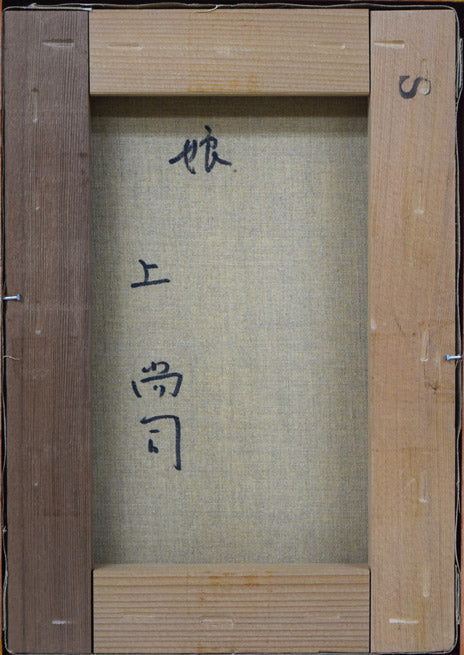 娘
上 尚司
S